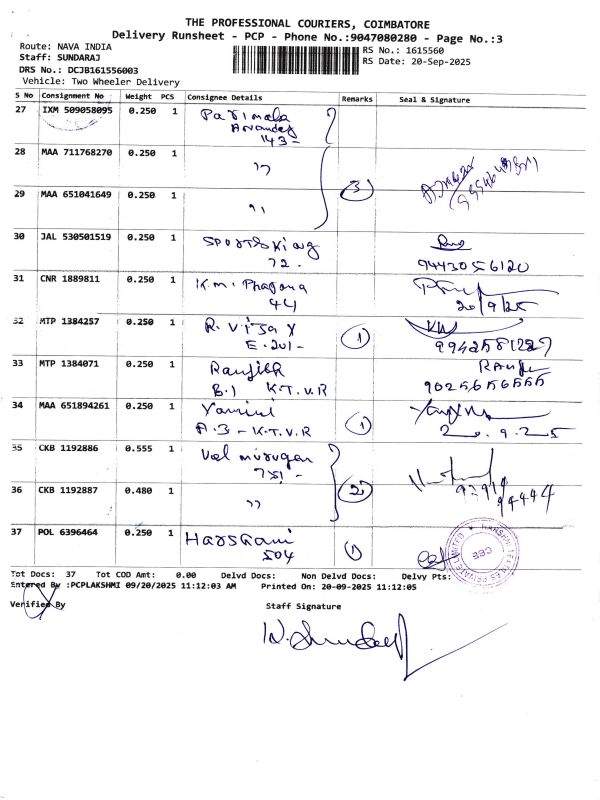 THE PROFESSIONAL COURIERS, COIMBATORE
Delivery Runsheet - PCP - Phone No.:9047080280 - Page No.:3
Route: NAVA INDIA
RS No.: 1615560
Staff: SUNDARAJ
RS Date: 20-Sep-2025
DRS No.: DCJB161556003
Vehicle: Two Wheeler Delivery
S No Consignment No Weight PCS Consignee Details Remarks Seal & Signature
27 IXM 509058095 0.250 1
143 -
28 MAA 711768270 0.250 1 ,,
3
29 MAA 651041649 0.250 1 ,,
30 JAL 530501519 0.250 1 Sports King
72.
9443056120
31 CNR 1889811 0.250 1 K.M. Phapana
44
20/9/25
32 MTP 1384257 0.250 1 R. Vijay 1
E-201-
9942581227
33 MTP 1384071 0.250 1 Ranjith
B.1 K.T.V.R
9025656555
34 MAA 651894261 0.250 1 Yamini 1
A.3 - K.T.V.R
20.9.25
35 CKB 1192886 0.555 1 Vel murugan
751 -
2
36 CKB 1192887 0.480 1 ,,
94444
37 POL 6396464 0.250 1 Harshani 1
504
CBE
Tot Docs: 37 Tot COD Amt: 0.00 Delvd Docs: Non Delvd Docs: Delvy Pts:
Entered By :PCPLAKSHMI 09/20/2025 11:12:03 AM Printed On: 20-09-2025 11:12:05
Verified By Staff Signature